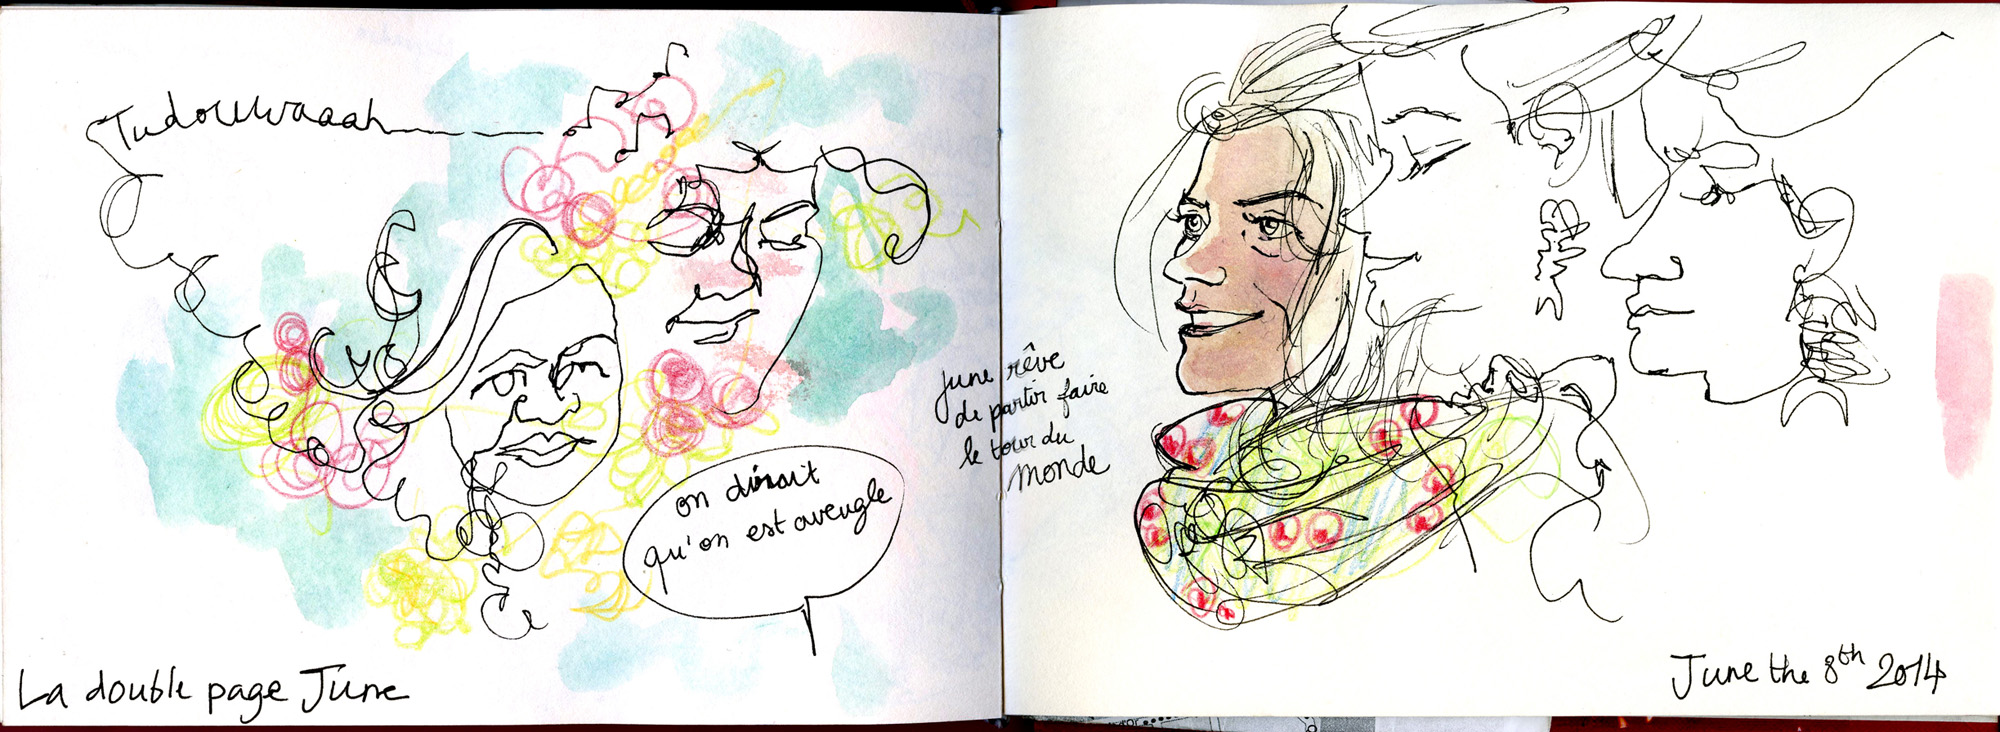 Tudouwaaah
on dirait
qu'on est aveugle
La double page June
june rêve
de partir faire
le tour du
monde
June the 8th 2014